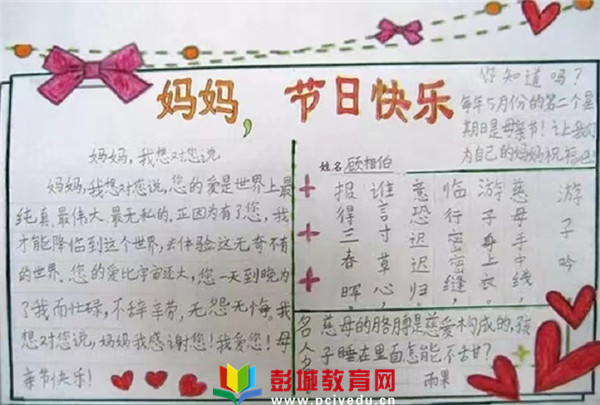 妈妈，节日快乐
你知道吗？
每年5月份的第二个星
期日是母亲节！让我们
为自己的妈妈祝福吧！
妈妈，我想对您说
妈妈，我想对您说，您的爱是世界上最
纯真、最伟大、最无私的。正因为有了您，我
才能降临到这个世界，去体验这无奇不有
的世界。您的爱比宇宙还大，您一天到晚为
了我而忙碌，不辞辛劳，无怨无悔。我
想对您说，妈妈我感谢您！我爱您！母
亲节快乐！
姓名 顾相伯
游子吟
慈母手中线，
游子身上衣。
临行密密缝，
意恐迟迟归。
谁言寸草心，
报得三春晖。
名 慈母的胳膊是慈爱构成的，孩
子睡在里面怎能不甜？
雨果
彭城教育网
www.pcjyedu.cn